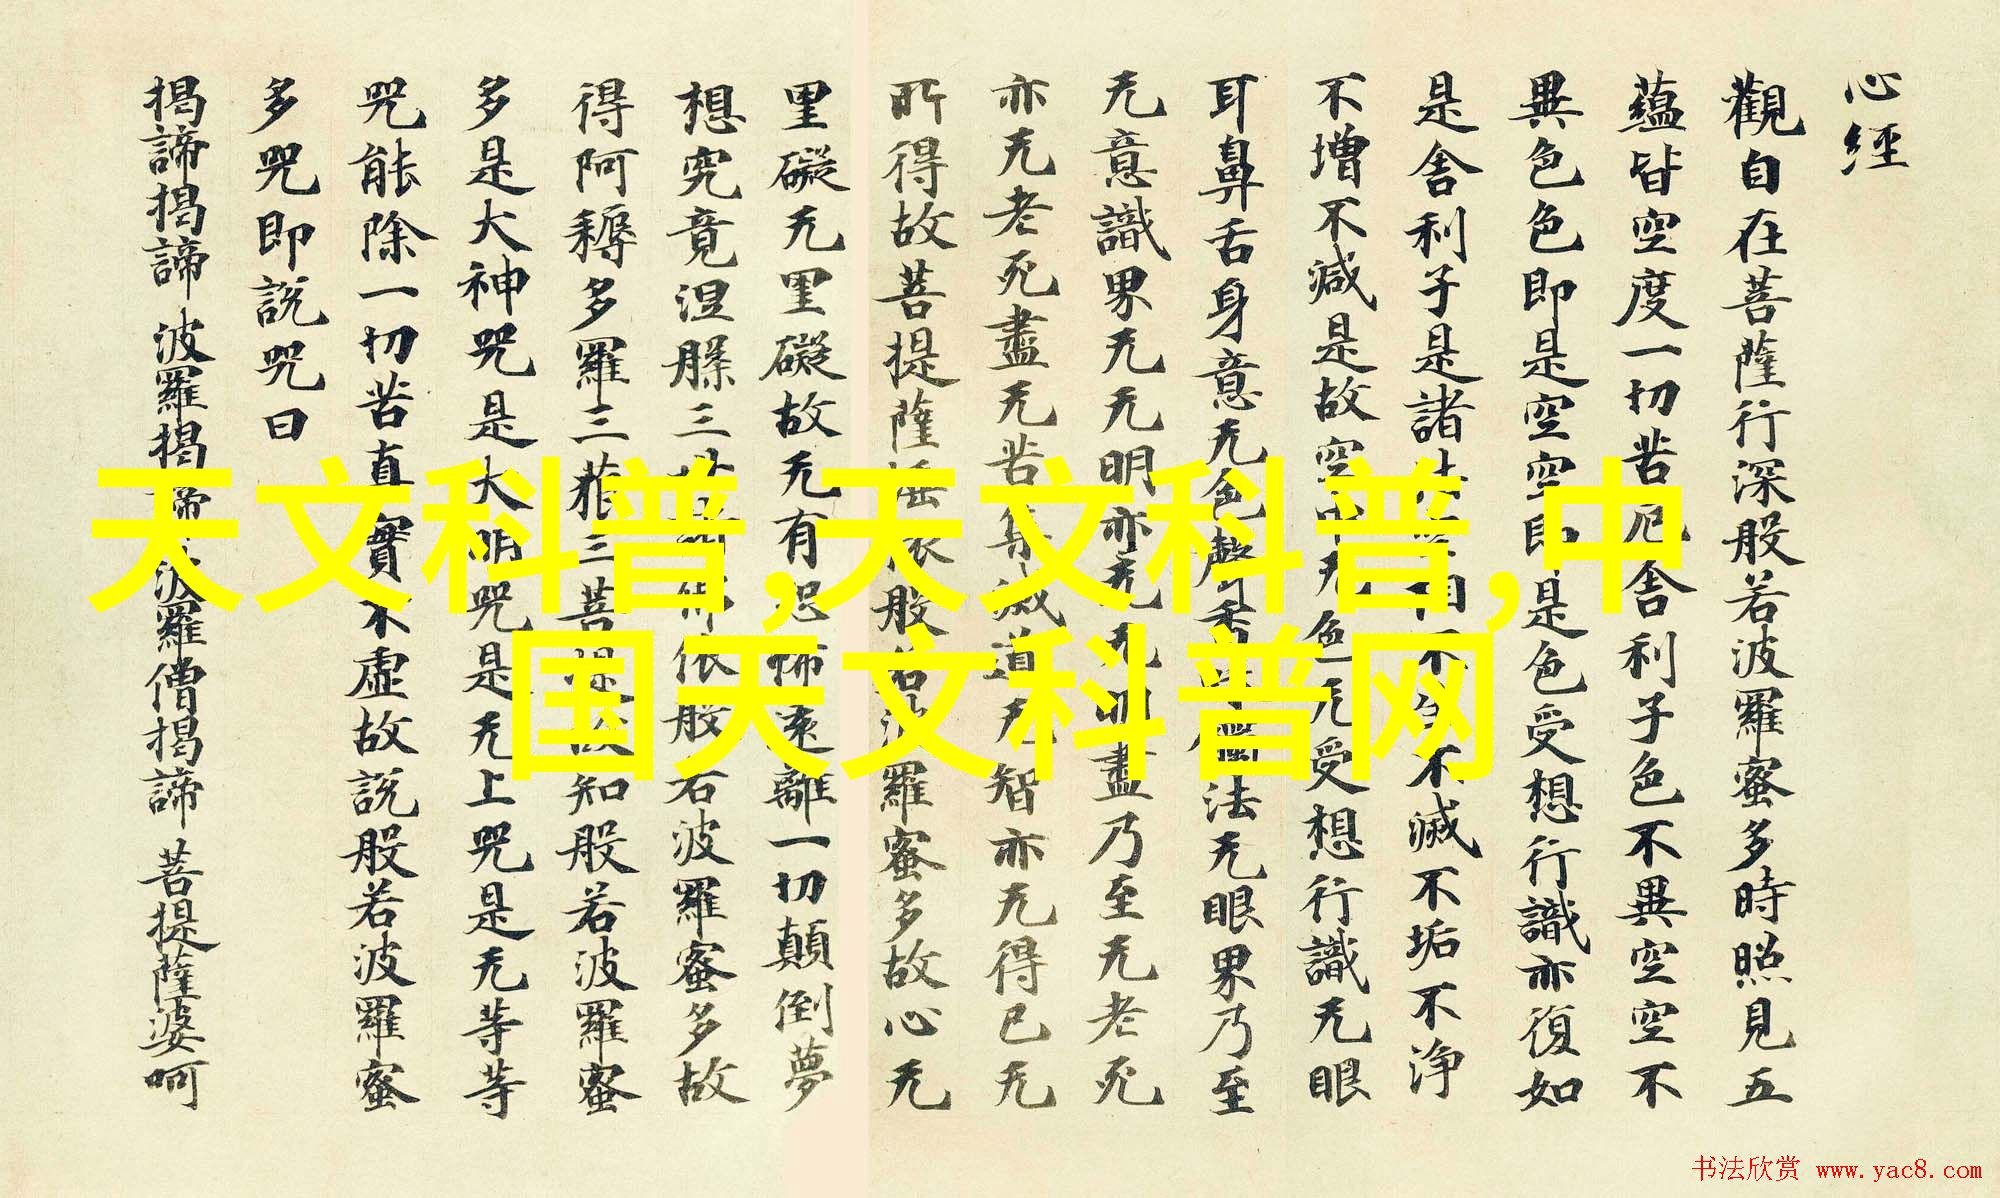 心經
觀自在菩薩行深般若波羅蜜多時照見五
蘊皆空度一切苦厄舍利子色不異空空不
異色色即是空空即是色受想行識亦復如
是舍利子是諸法空相不生不滅不垢不淨
不增不減是故空中无色无受想行識无眼
耳鼻舌身意无色聲香味觸法无眼界乃至
无意識界无无明亦无无明盡乃至无老死
亦无老死盡无苦集滅道无智亦无得已无
所得故菩提薩埵依般若波羅蜜多故心无
罣礙无罣礙故无有恐怖遠離一切顛倒夢
想究竟涅槃三世諸佛依般若波羅蜜多故
得阿耨多羅三藐三菩提故知般若波羅蜜
多是大神咒是大明咒是无上咒是无等等
咒能除一切苦真實不虛故說般若波羅蜜
多咒即說咒曰
揭諦揭諦 波羅揭諦 波羅僧揭諦 菩提薩婆呵
天文科普,天文科普,中
国天文科普网
书法欣赏 www.yac8.com